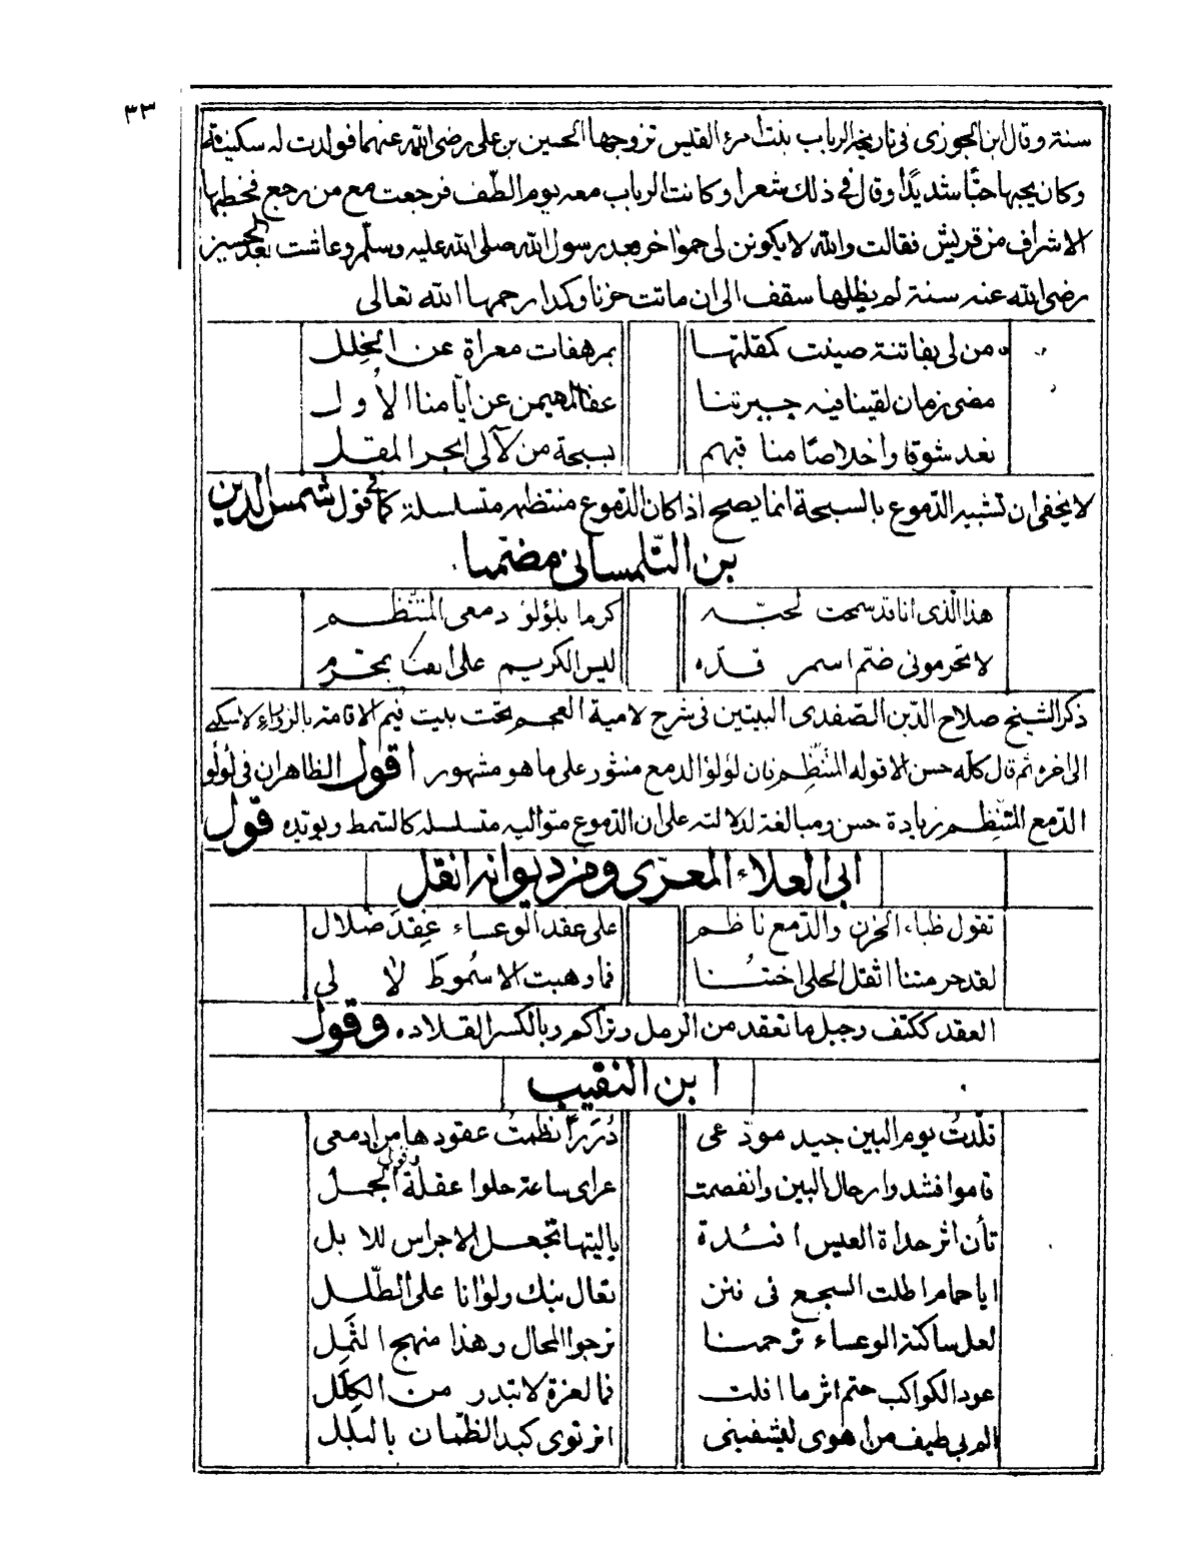 ٣٣
سنة وقال ابن الجوزى فى تاريخه الرباب بنت امرء القيس تزوجها الحسين بن على رضى الله عنهما فولدت له سكينة
وكان يحبها حبّا شديدًا وقال فى ذلك شعرا وكانت الرباب معه يوم الطّف فرجعت مع من رجع فخطبها
الاشراف من قريش فقالت والله لا يكونن لى حموا خر بعد رسول الله صلى الله عليه وسلّم وعاشت بعد الحسين
رضى الله عنه سنة لم يظلها سقف الى ان ماتت حزنا وكدا رحمها الله تعالى
من لى بفاتنة صينت كمقلتها بمرهفات معراة عن الخِلل
مضى زمان لقينا فيه جيرتنا عفا المهيمن عن ايّامنا الأول
نعد شوقا واخلاصًا مناقبهم بسبحة من لآلى ابحر المقل
لا يخفى ان تشبيه الدّموع بالسبحة انما يصح اذا كان الدّموع منتظمه متسلسلة كما فى قول شمس الدين
بن التّلمسانى مضمّنا
هذا الّذى انا قد سمحت لحبّه كرما بلؤلؤ دمعى المُتَنَظِّم
لا تحرمونى ضمّ اسمر قدّه ليس الكريم على القنا بمحرّم
ذكر الشيخ صلاح الدّين الصّفدى البيتين فى شرح لامية العجم تحت بيت فيم الاقامة بالزوراء لا سكنى
الى اخره ثم قال كلّه حسن الا قوله المُتَنَظِّم فان لؤلؤ الدمع منثور على ما هو مشهور اقول الظاهر ان فى لؤلؤ
الدّمع المتنظِّم زيادة حسن ومبالغة لدلالته على ان الدّموع متواليه متسلسله كالسّمط ويؤيّده قول
ابى العلاء المعرّى ومن ديوانه انقل
تقول ظباء الحزن والدّمع ناظم على عقد الوعساء عِقدَ ضلال
لقد حرمتنا اثقل الحلى اختنا فما وهبت الا سُموطَ لالى
العقد ككتف وجبل ما تعقد من الرمل وتراكم وبالكسر القلاده وقول
ابن النقيب
قلّدتُ يوم البين جيد مودّعى دُرَرًا نظمتُ عقودها من ادمعى
وقولى
قاموا فشدوا رحال البين وانفصمت عراى ساعة حلوا عقلة الجمل
تأن اثر حداة العيس افئدة ياليتها تجعل الاجراس للابل
ايا حماما طلت السجع فى فنن تعال نبك ولو انا على الطّلل
لعل ساكنة الوعساء ترحمنا نرجوا المحال وهذا منهج الثَمِل
عود الكواكب حتم اثر ما افلت فما لعزة لا تبدر من الكِلَل
الم بى طيف من اهوى ليشفينى انرتوى كبد الظمّان بالبلل